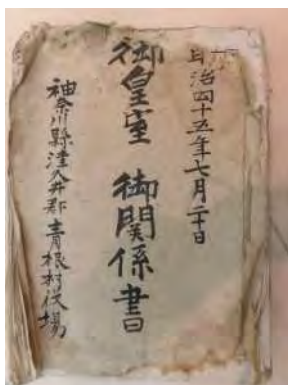 明治四十五年七月二十日
御皇室 御関係書
神奈川縣津久井郡青根村役場